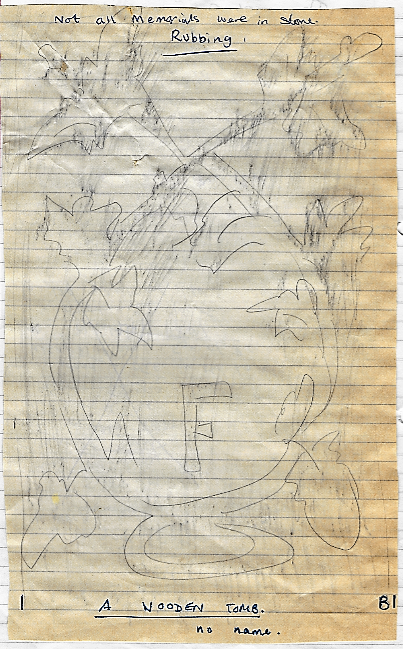 Not all Memorials were in stone.
Rubbing.
F
1 A WOODEN TOMB. B1
no name.